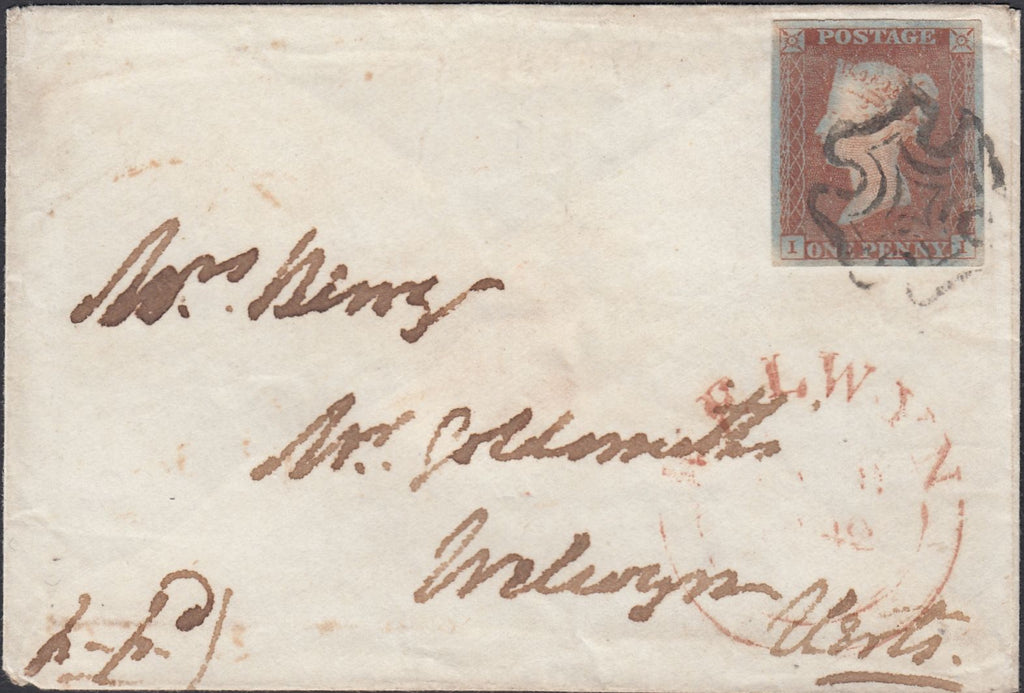 POSTAGE
I ONE PENNY I
Mrs. King
Mr. Goldsmith's
Welwyn
Herts.
p-pd)
ELWYN
42